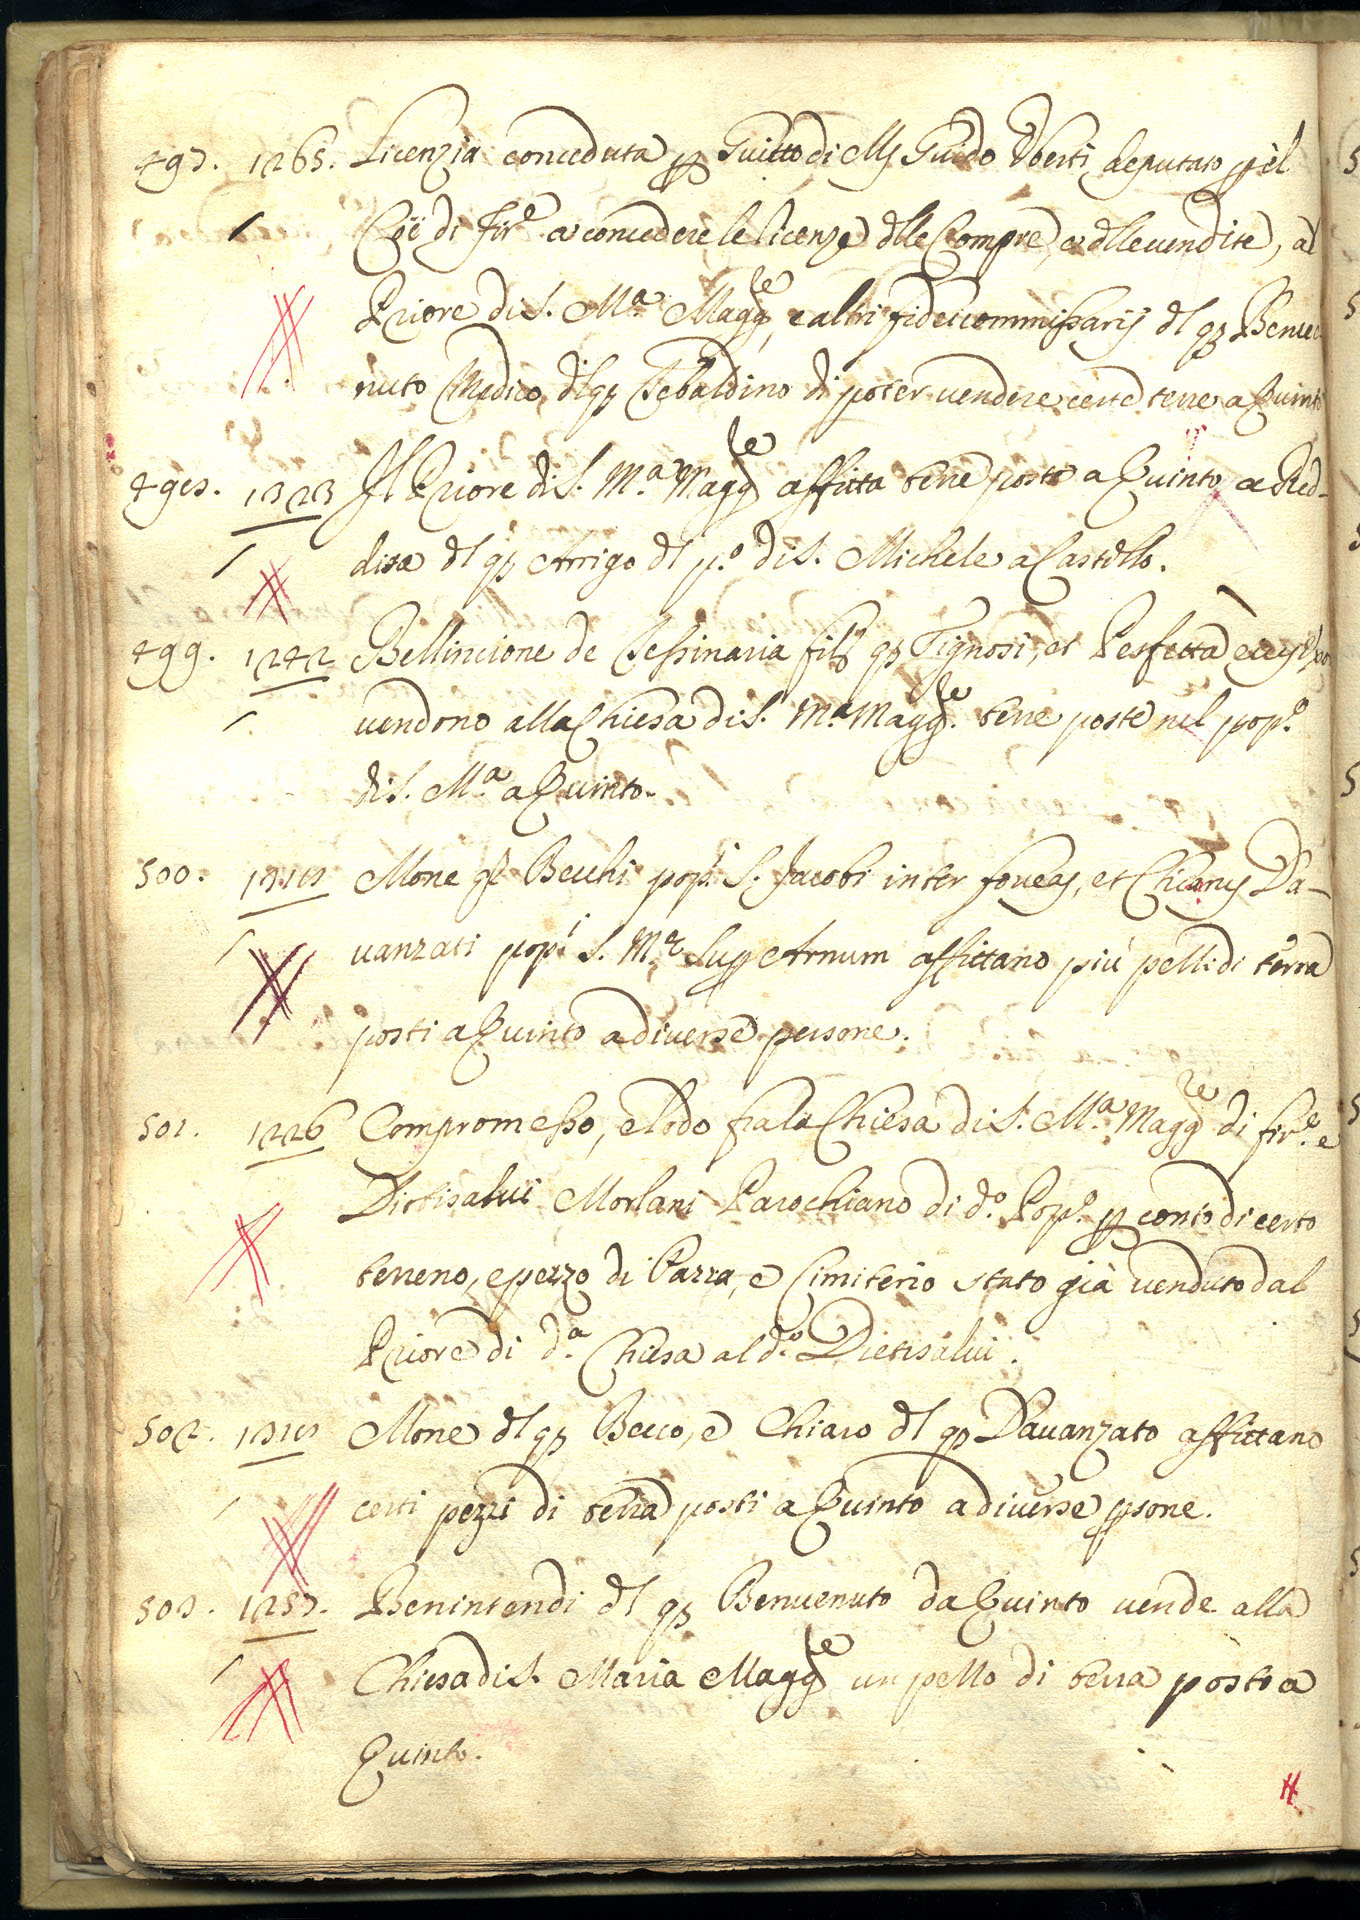 497. 1265. Licenzia conceduta p Guitto di M Guido Uberti deputato p il
Coẽ di Fir.e a concedere le licenze dlle Compre, e dlle vendite, al
Priore di S. M.a Magg.re, e altri fideicommissarij dl qp Benve-
nuto Medico dl qp Tebaldino di poter vendere certe terre a Quinto
498. 1323 Il Priore di S. M.a Magg.re affitta terre poste a Quinto a Red-
dita dl qp Arrigo dl p.o di S. Michele a Castello.
499. 1242 Bellincione de Tessinaria fil qp Tignosi, et Perfetta
vendono alla Chiesa di S. M.a Magg.re terre poste nel pop.o
di S. M.a a Quinto.
500. 1318 Mone qp Becchi pop.i S. Jacobi inter foveas, et Chiarus Da-
vanzati pop.i S. M.e Sup Arnum affittano più pezzi di terra
posti a Quinto a diverse persone.
501. 1226 Compromesso, e lodo fra la Chiesa di S. M.a Magg.re di Fir.e e
Diotisalvi Morlani Parochiano di d.o Pop.o p conto di certo
terreno, e pezzo di Pazza, e Cimiterio stato già venduto dal
Priore di d.a Chiesa al d.o Dietisalvi.
502. 1318 Mone dl qp Becco, e Chiaro dl qp Davanzato affittano
certi pezzi di terra posti a Quinto a diverse psone.
503. 1257. Benintendi dl qp Benvenuto da Quinto vende alla
Chiesa di S. Maria Magg.re un pezzo di terra posto a
Quinto.